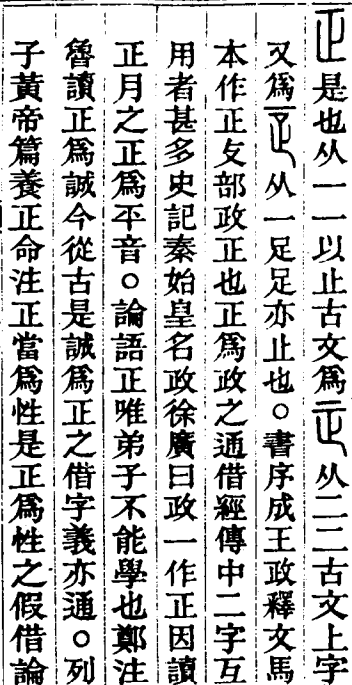 正是也从一一以止古文爲从二二古文上字
又爲从一足足亦止也○書序成王政釋文馬
本作正攴部政正也正爲政之通借經傳中二字互
用者甚多史記秦始皇名政徐廣曰政一作正因讀
正月之正爲平音○論語正唯弟子不能學也鄭注
魯讀正爲誠今從古是誠爲正之借字義亦通○列
子黃帝篇養正命注正當爲性是正爲性之假借論